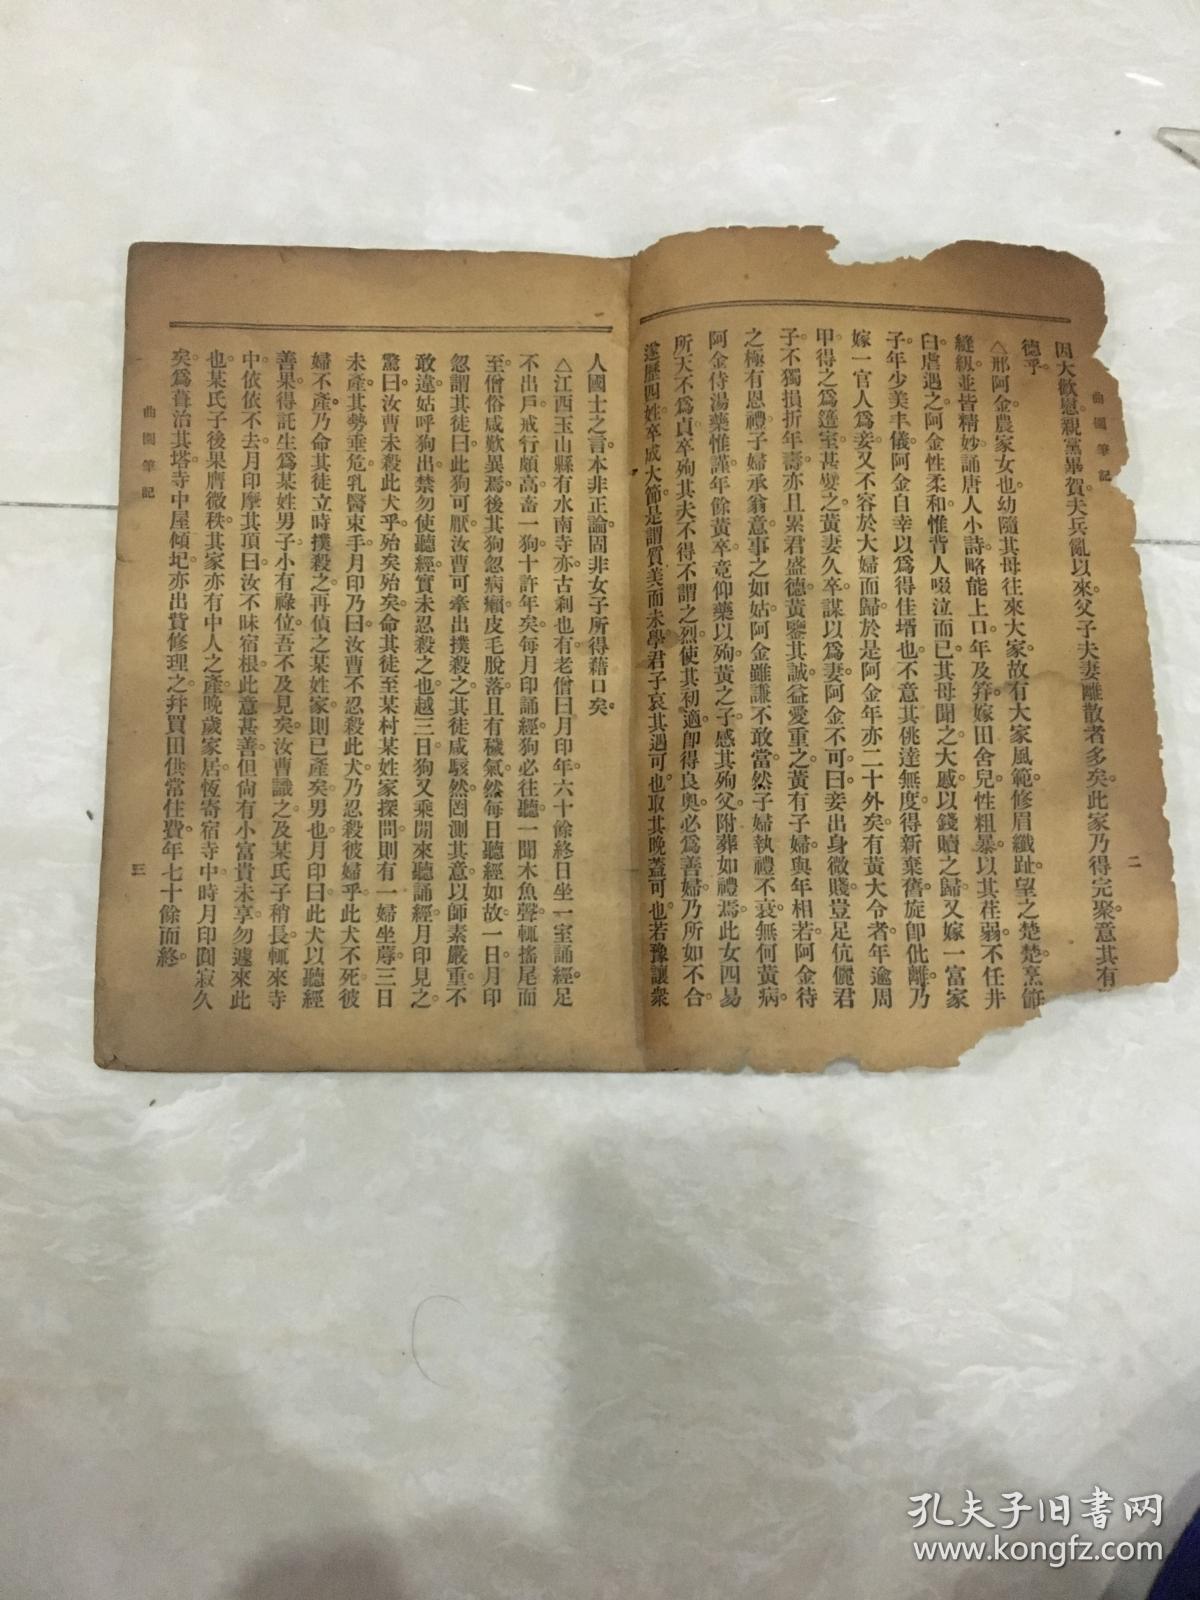 曲園筆記
二
因大歡慰親黨畢賀夫兵亂以來父子夫妻離散者多矣此家乃得完聚意其有
德乎
△邢阿金農家女也幼隨其母往來大家故有大家風範修眉纖趾望之楚楚烹飪
縫紉並皆精妙誦唐人小詩略能上口年及笄嫁田舍兒性粗暴以其荏弱不任井
臼虐遇之阿金性柔和惟背人啜泣而已其母聞之大慼以錢贖之歸又嫁一富家
子年少美丰儀阿金自幸以爲得佳壻也不意其佻達無度得新棄舊旋卽仳離乃
嫁一官人爲妾又不容於大婦而歸於是阿金年亦二十外矣有黃大令者年逾周
甲得之爲簉室甚嬖之黃妻久卒謀以爲妻阿金不可曰妾出身微賤豈足伉儷君
子不獨損折年壽亦且累君盛德黃鑒其誠益愛重之黃有子婦與年相若阿金待
之極有恩禮子婦承翁意事之如姑阿金雖謙不敢當然子婦執禮不衰無何黃病
阿金侍湯藥惟謹年餘黃卒竟仰藥以殉黃之子感其殉父附葬如禮焉此女四易
所天不爲貞卒殉其夫不得不謂之烈使其初適卽得良奧必爲善婦乃所如不合
遂歷四姓卒成大節是謂質美而未學君子哀其遇可也取其晚蓋可也若豫讓衆
人國士之言本非正論固非女子所得藉口矣
△江西玉山縣有水南寺亦古刹也有老僧曰月印年六十餘終日坐一室誦經足
不出戶戒行頗高畜一狗十許年矣每月印誦經狗必往聽一聞木魚聲輒搖尾而
至僧俗咸歎異焉後其狗忽病癩皮毛脫落且有穢氣然每日聽經如故一日月印
忽謂其徒曰此狗可厭汝曹可牽出撲殺之其徒咸駭然罔測其意以師素嚴重不
敢違姑呼狗出禁勿使聽經實未忍殺之也越三日狗又乘閒來聽誦經月印見之
驚曰汝曹未殺此犬乎殆矣殆矣命其徒至某村某姓家探問則有一婦坐蓐三日
未產其勢垂危乳醫束手月印乃曰汝曹不忍殺此犬乃忍殺彼婦乎此犬不死彼
婦不產乃命其徒立時撲殺之再偵之某姓家則已產矣男也月印曰此犬以聽經
善果得託生爲某姓男子小有祿位吾不及見矣汝曹識之及某氏子稍長輒來寺
中依依不去月印摩其頂曰汝不昧宿根此意甚善但尙有小富貴未享勿遽來此
也某氏子後果膺微秩其家亦有中人之產晚歲家居恆寄宿寺中時月印圓寂久
矣爲葺治其塔寺中屋傾圮亦出貲修理之幷買田供常住費年七十餘而終
曲園筆記
三
孔夫子旧书网
www.kongfz.com